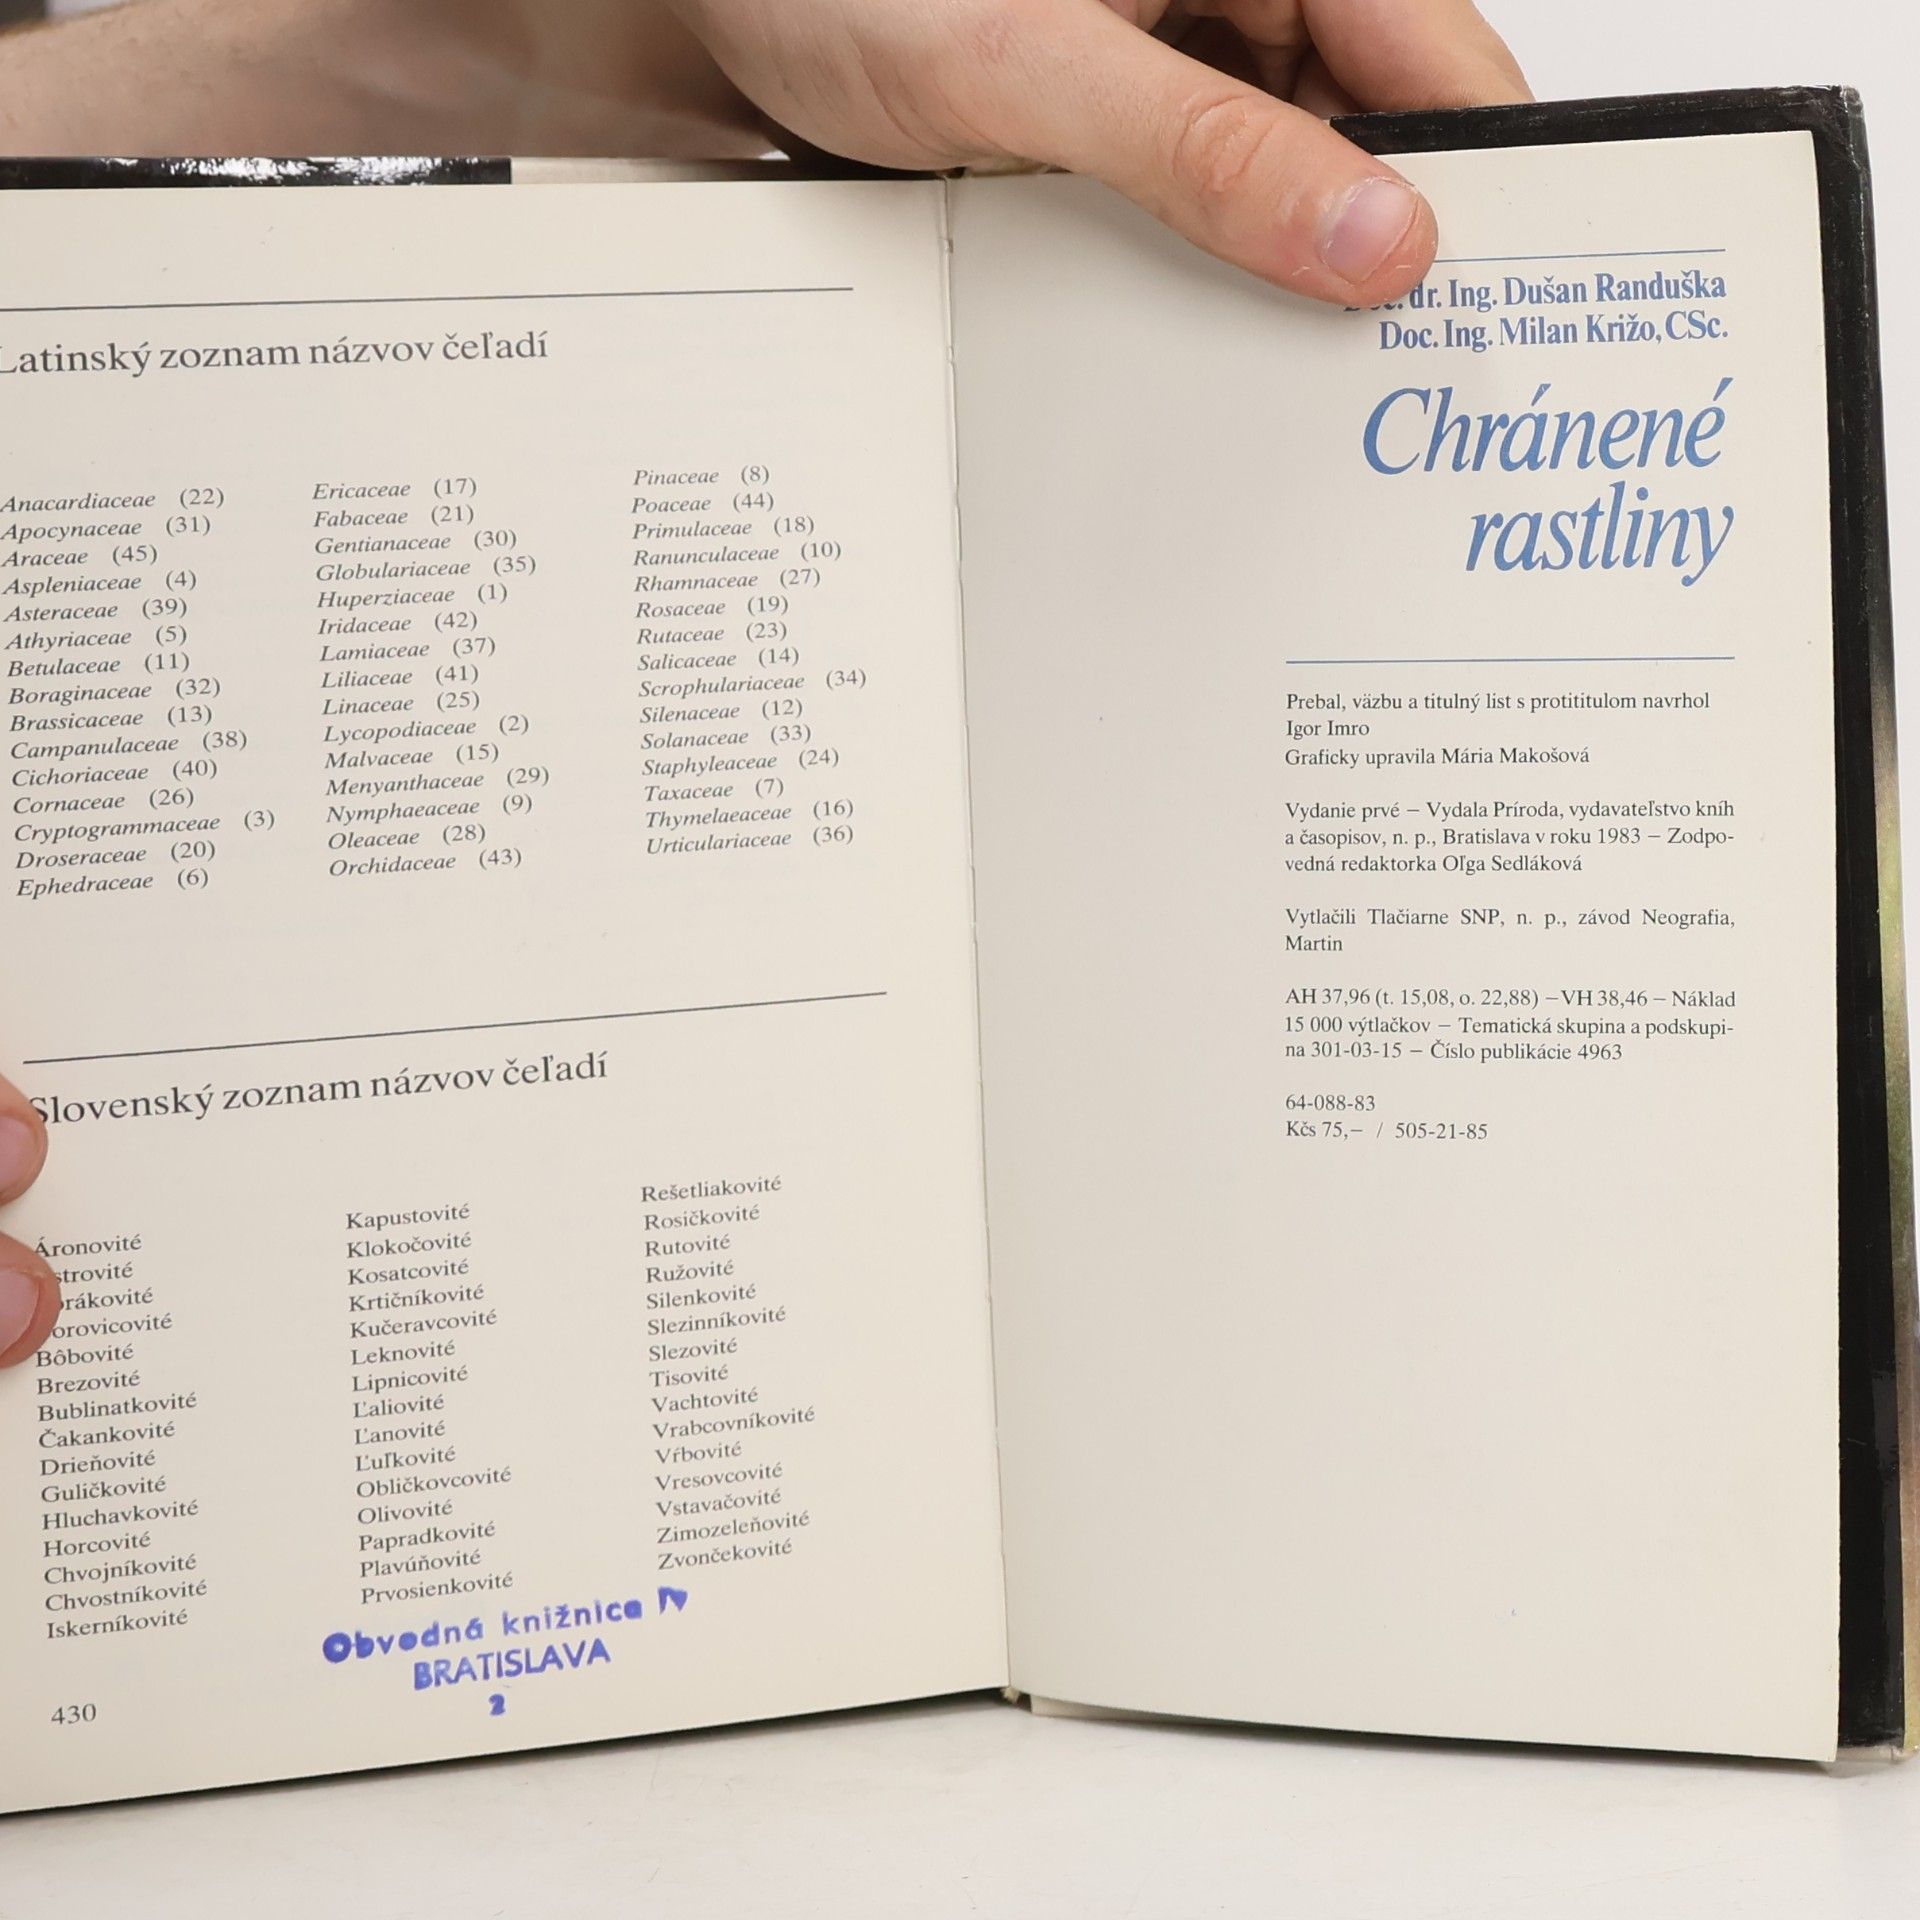 Latinský zoznam názvov čeľadí
Anacardiaceae (22)
Apocynaceae (31)
Araceae (45)
Aspleniaceae (4)
Asteraceae (39)
Athyriaceae (5)
Betulaceae (11)
Boraginaceae (32)
Brassicaceae (13)
Campanulaceae (38)
Cichoriaceae (40)
Cornaceae (26)
Cryptogrammaceae (3)
Droseraceae (20)
Ephedraceae (6)
Ericaceae (17)
Fabaceae (21)
Gentianaceae (30)
Globulariaceae (35)
Huperziaceae (1)
Iridaceae (42)
Lamiaceae (37)
Liliaceae (41)
Linaceae (25)
Lycopodiaceae (2)
Malvaceae (15)
Menyanthaceae (29)
Nymphaeaceae (9)
Oleaceae (28)
Orchidaceae (43)
Pinaceae (8)
Poaceae (44)
Primulaceae (18)
Ranunculaceae (10)
Rhamnaceae (27)
Rosaceae (19)
Rutaceae (23)
Salicaceae (14)
Scrophulariaceae (34)
Silenaceae (12)
Solanaceae (33)
Staphyleaceae (24)
Taxaceae (7)
Thymelaeaceae (16)
Urticulariaceae (36)
Slovenský zoznam názvov čeľadí
Áronovité
strovité
rákovité
orovicovité
Bôbovité
Brezovité
Bublinatkovité
Čakankovité
Drieňovité
Guličkovité
Hluchavkovité
Horcovité
Chvojníkovité
Chvostníkovité
Iskerníkovité
Kapustovité
Klokočovité
Kosatcovité
Krtičníkovité
Kučeravcovité
Leknovité
Lipnicovité
Ľaliovité
Ľanovité
Ľuľkovité
Obličkovcovité
Olivovité
Papradkovité
Plavúňovité
Prvosienkovité
Rešetliakovité
Rosičkovité
Rutovité
Ružovité
Silenkovité
Slezinníkovité
Slezovité
Tisovité
Vachtovité
Vrabcovníkovité
Vŕbovité
Vresovcovité
Vstavačovité
Zimozeleňovité
Zvončekovité
Obvodná knižnica IV
BRATISLAVA
2
430
dr. Ing. Dušan Randuška
Doc. Ing. Milan Križo, CSc.
Chránené
rastliny
Prebal, väzbu a titulný list s protititulom navrhol
Igor Imro
Graficky upravila Mária Makošová
Vydanie prvé – Vydala Príroda, vydavateľstvo kníh
a časopisov, n. p., Bratislava v roku 1983 – Zodpo-
vedná redaktorka Oľga Sedláková
Vytlačili Tlačiarne SNP, n. p., závod Neografia,
Martin
AH 37,96 (t. 15,08, o. 22,88) –VH 38,46 – Náklad
15 000 výtlačkov – Tematická skupina a podskupi-
na 301-03-15 – Číslo publikácie 4963
64-088-83
Kčs 75,– / 505-21-85